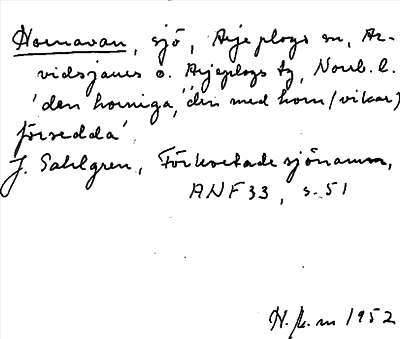 Hornavan, sjö, Arjeplogs sn, Ar-
vidsjaurs o. Arjeplogs tg, Norrb. l.
'den horniga,' 'den med horn (vikar)
försedda'.
J. Sahlgren, Förkortade sjönamn,
ANF 33, s. 51
H. fk. m 1952